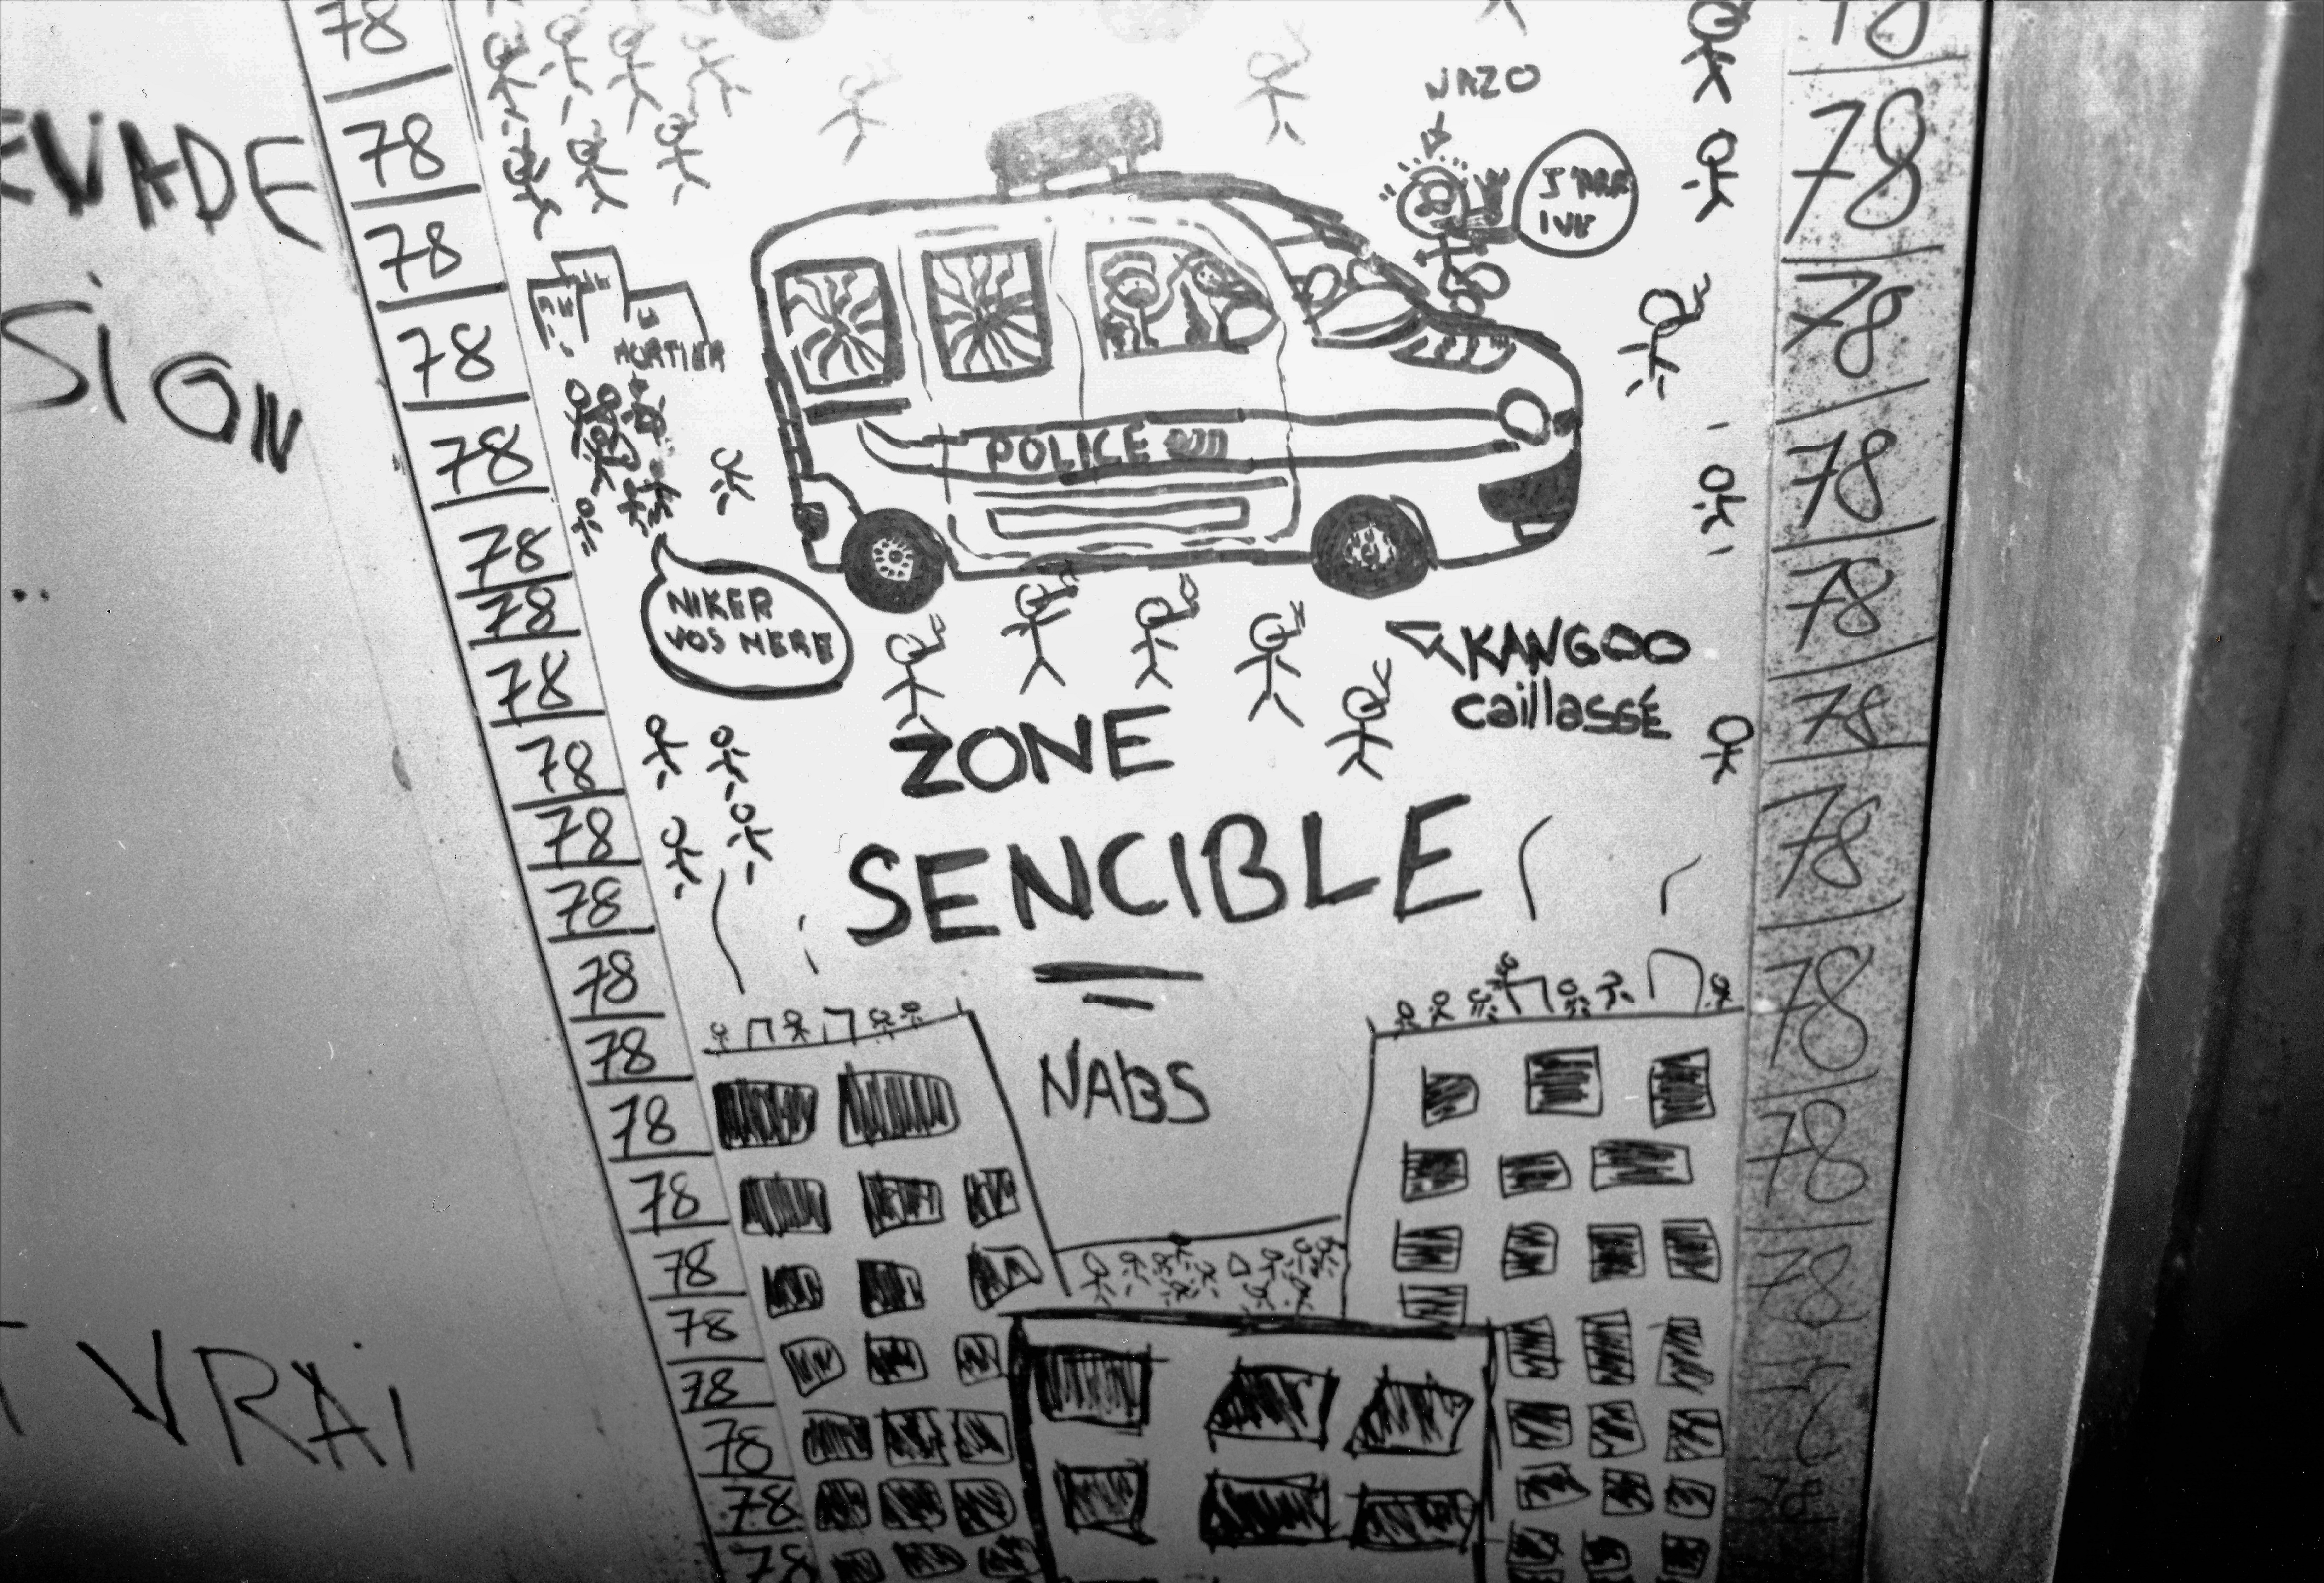 78
78
78
78
78
78
78
78
78
78
78
78
78
78
78
78
78
78
78
78
78
SION
VRAI
NAZO
J'ARR
IVE
MORTIER
POLICE
NIKER
VOS MERE
KANGOO
caillassé
ZONE
SENCIBLE
NABS
78
78
78
78
78
78
78
78
78